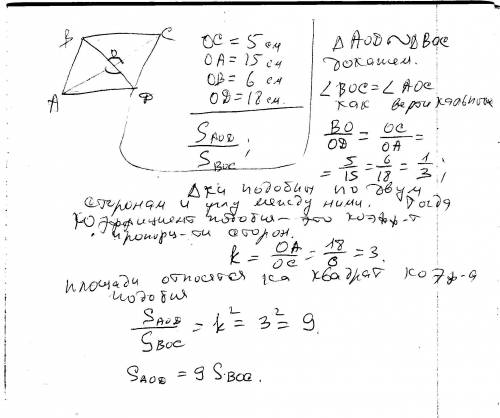 B C
O
A D
OC = 5 см
OA = 15 см
OB = 6 см
OD = 18 см.
S_AOD / S_BOC ;
Δ AOD ~ Δ BOC
докажем.
∠ BOC = ∠ AOC
как вертикальные
BO / OD = OC / OA =
= 5/15 = 6/18 = 1/3 ;
Δ-ки подобны по двум
сторонам и углу между ними. Тогда
коэффициент подобия - это коэфф-т
пропорц-ти сторон.
k = OA / OC = 18/6 = 3.
площади относятся как квадрат коэф-а
подобия
S_AOD / S_BOC = k² = 3² = 9
S_AOD = 9 S_BOC.